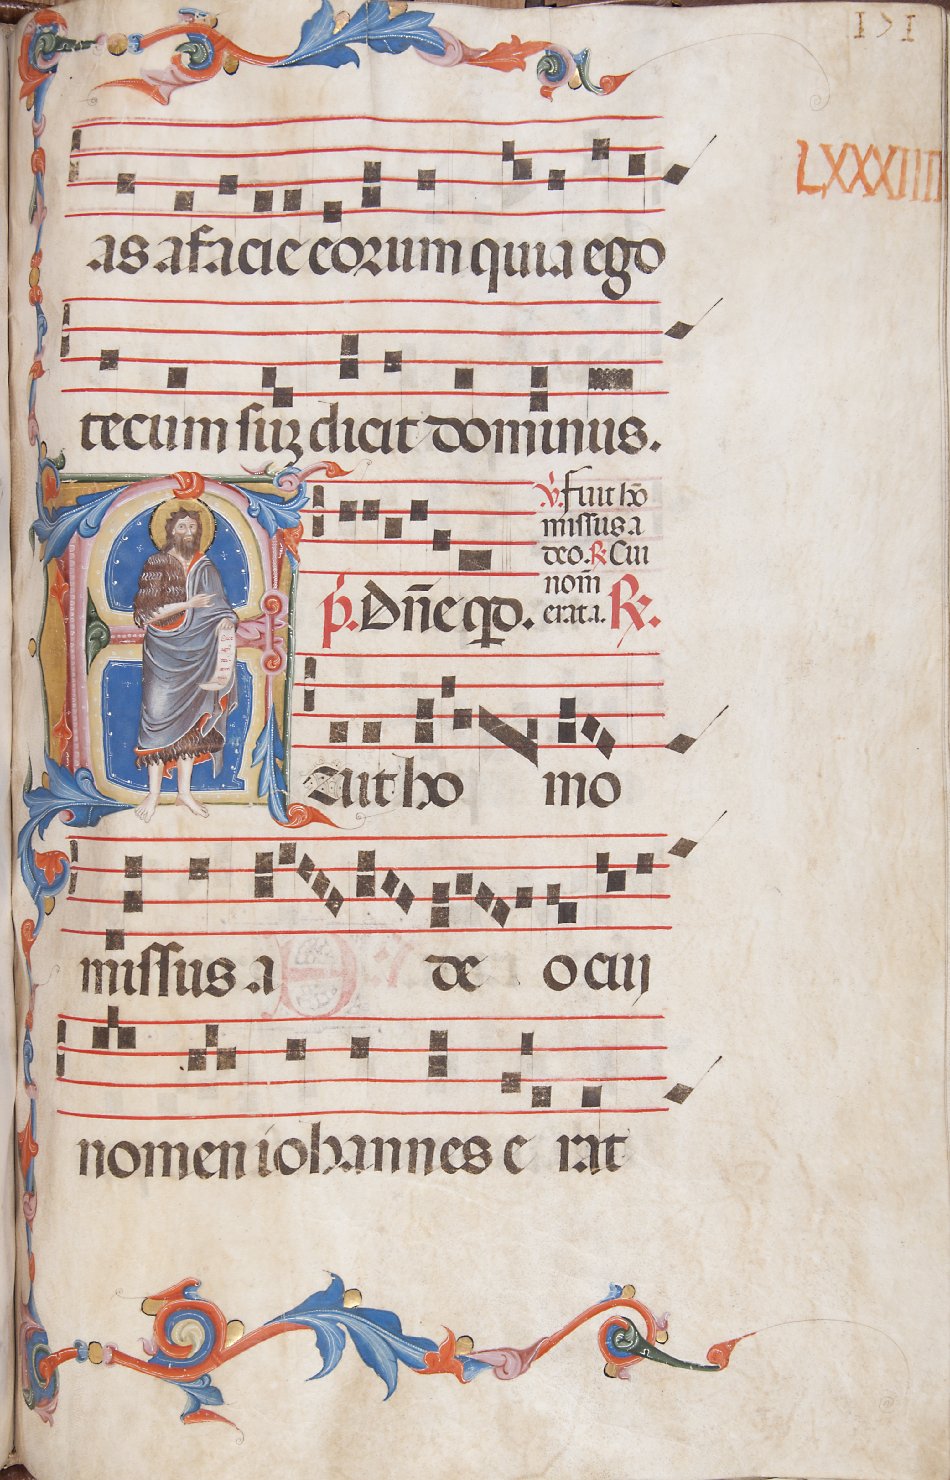 171
LXXXIIII
as a facie eorum quia ego
tecum suʒ dicit dominus.
℣. fuit hō
missus a
deo. ℟ Cui
nom̄
erat a.
p̓. Dn̄e qd. ℟.
Fuit ho mo
missus a de o cuij
nomen iohannes e rat